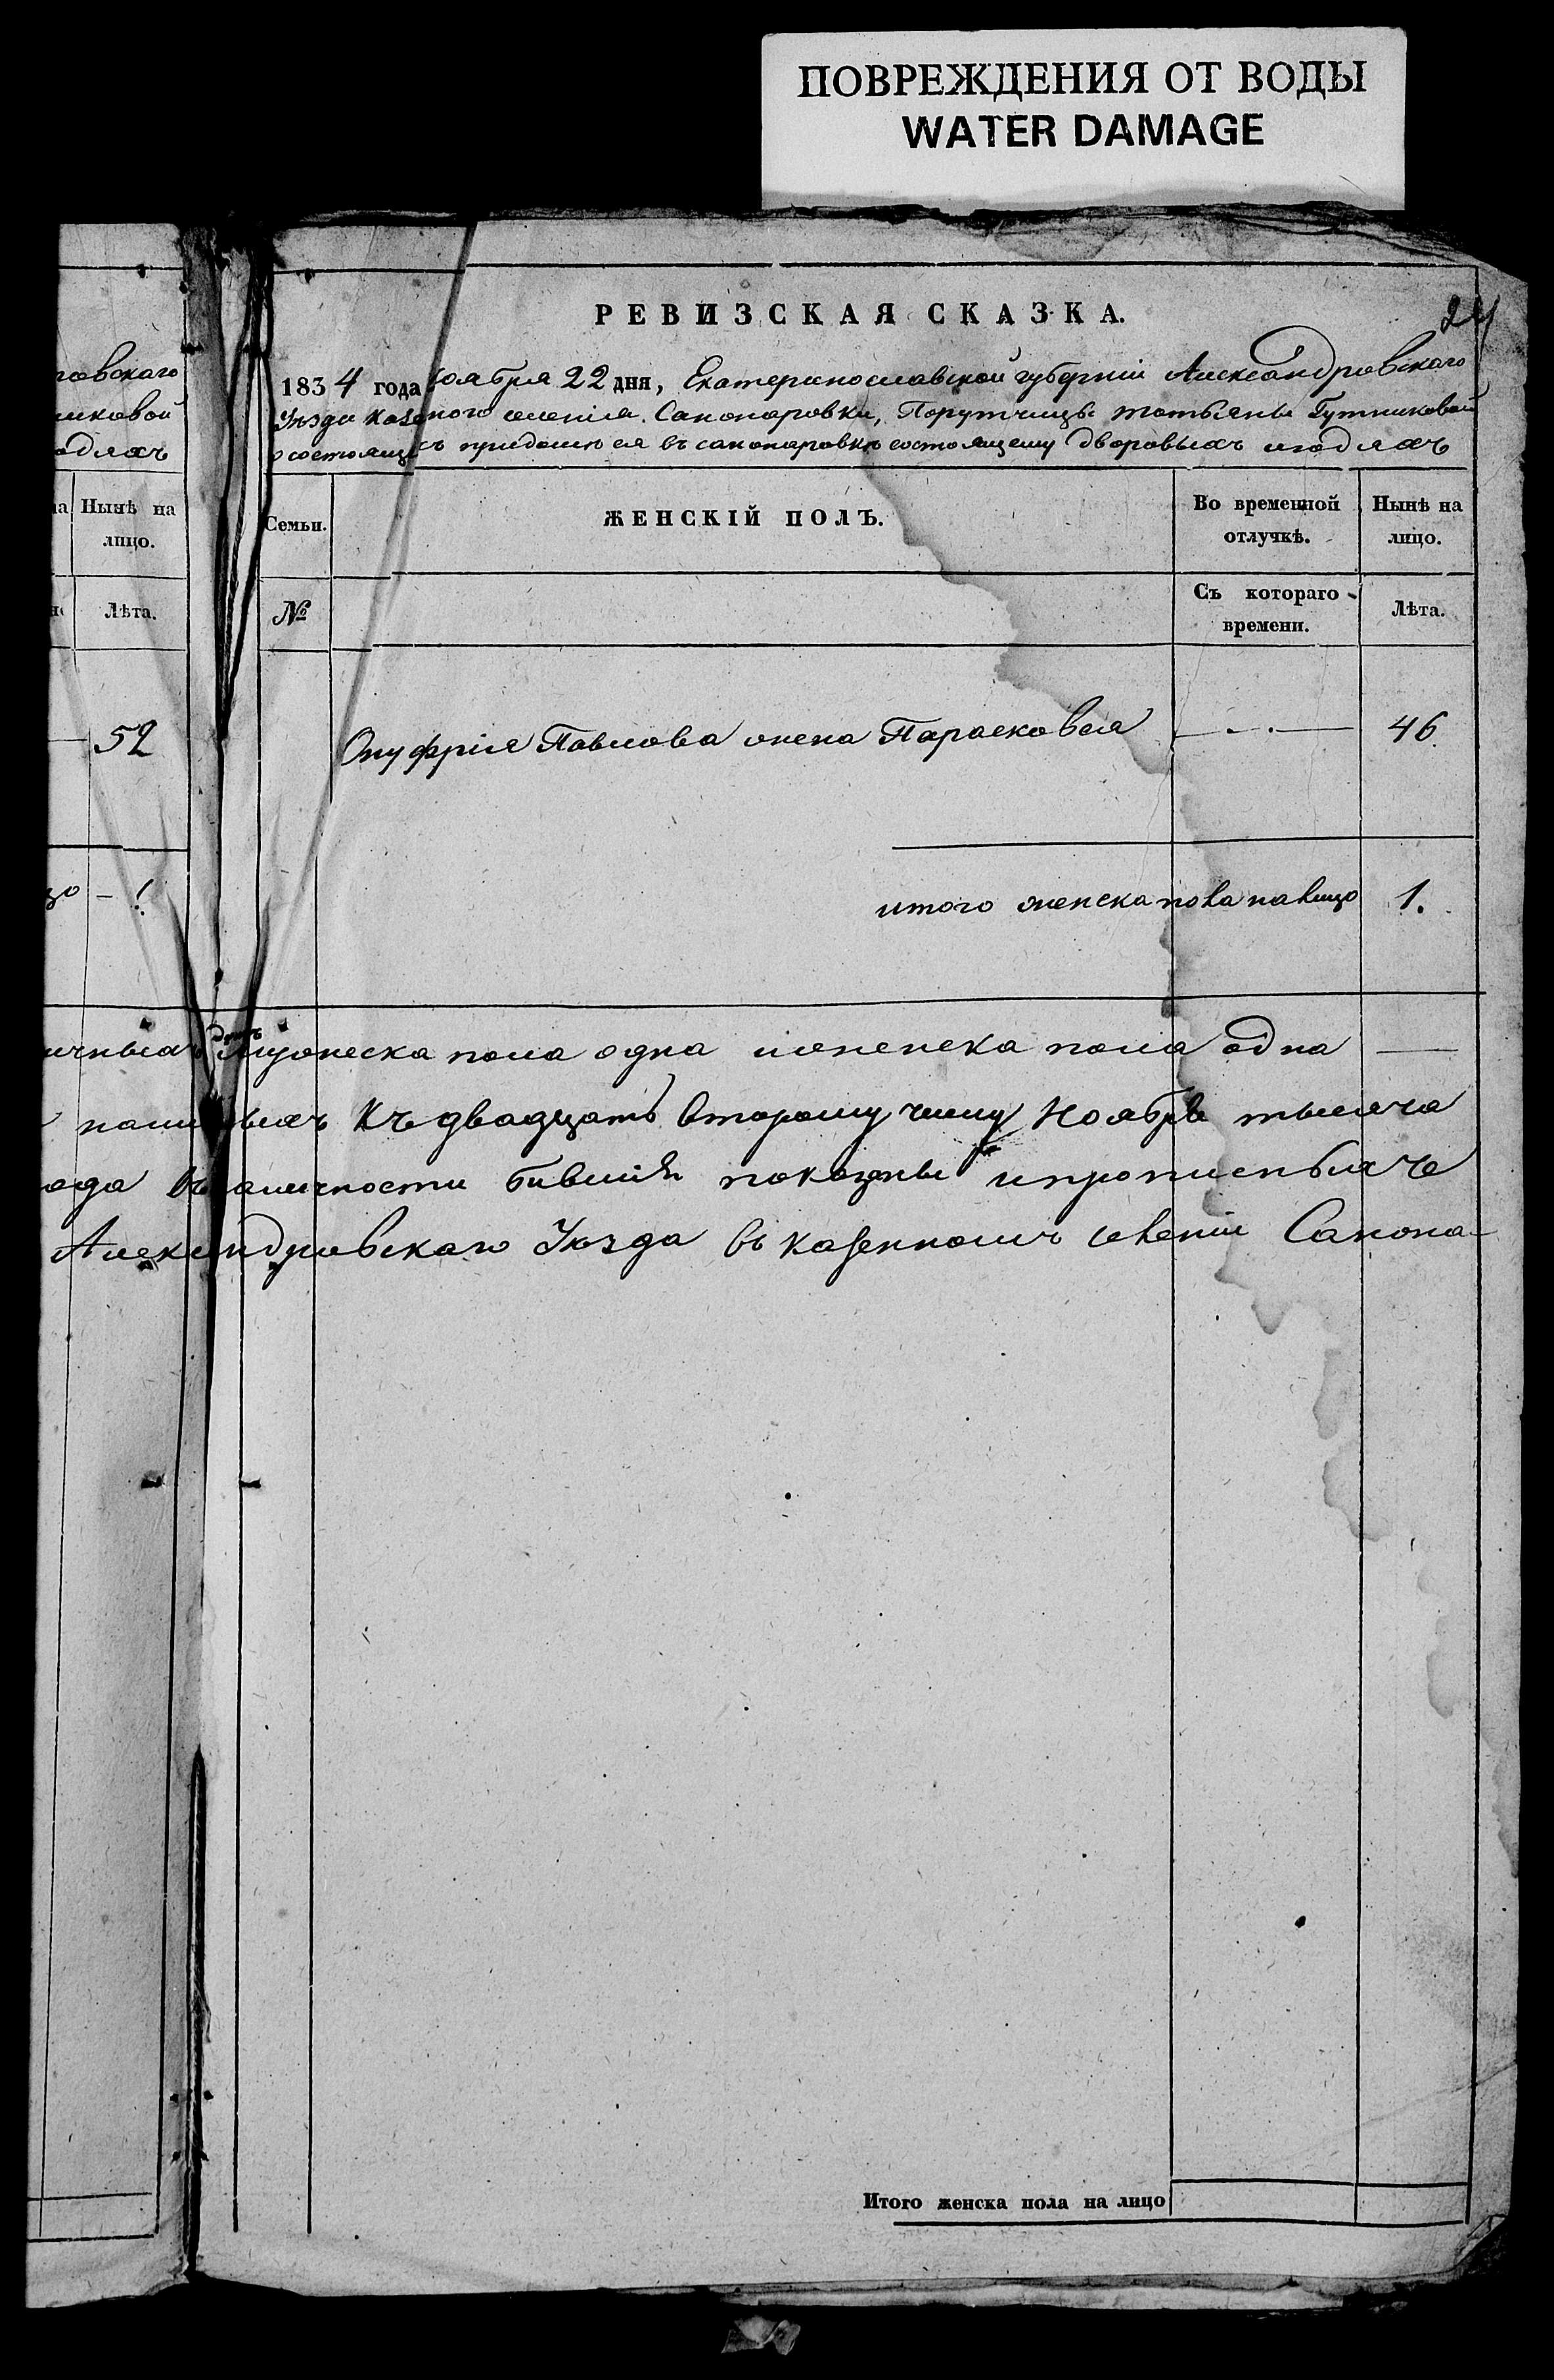 ПОВРЕЖДЕНИЯ ОТ ВОДЫ
WATER DAMAGE
РЕВИЗСКАЯ СКАЗКА.
24
1834 года Ноября 22 дня, Екатеринославской губернiи Александровскаго
Уѣзда казеного селенiя Сапонаровки, Порутчицы татьяны Гутниковой
о состоящихъ придомѣ ея въ сапонаровкѣ состоящему дворовыхъ людяхъ
ковой
одяхъ
Нынѣ на
лицо.
Лѣта.
52
1
Семьи.
ЖЕНСКIЙ ПОЛЪ.
Во временной
отлучкѣ.
Нынѣ на
лицо.
№
Съ котораго
времени.
Лѣта.
Онуфрiя Павлова жена Параскoвея — 46.
итого женска пола налицо 1.
мужеска пола одна иженска пола одна —
къ двадцать второму числу Ноября тысяча
ода въ наличности бывшiя показаны ипрописныхъ
Александровскаго Уѣзда въ казенномъ селенiи Сапона-
Итого женска пола на лицо